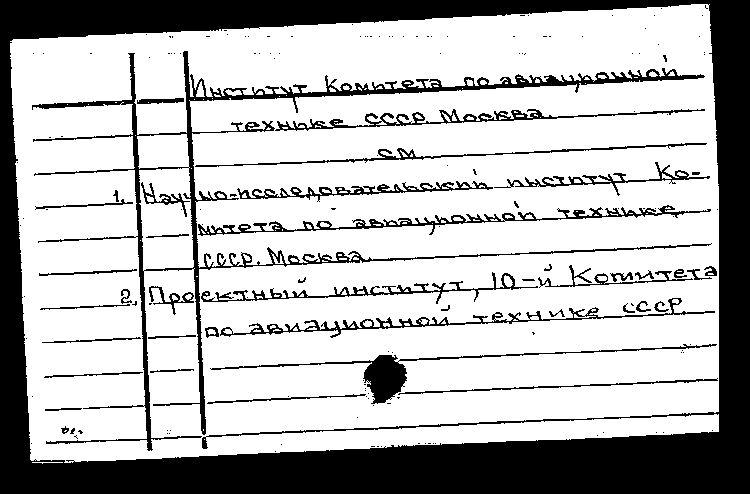 Институт Комитета по авиационной
технике СССР. Москва.
см.
1. Научно-исследовательский институт Ко-
митета по авиационной технике
СССР. Москва.
2. Проектный институт, 10-й Комитета
по авиационной технике СССР